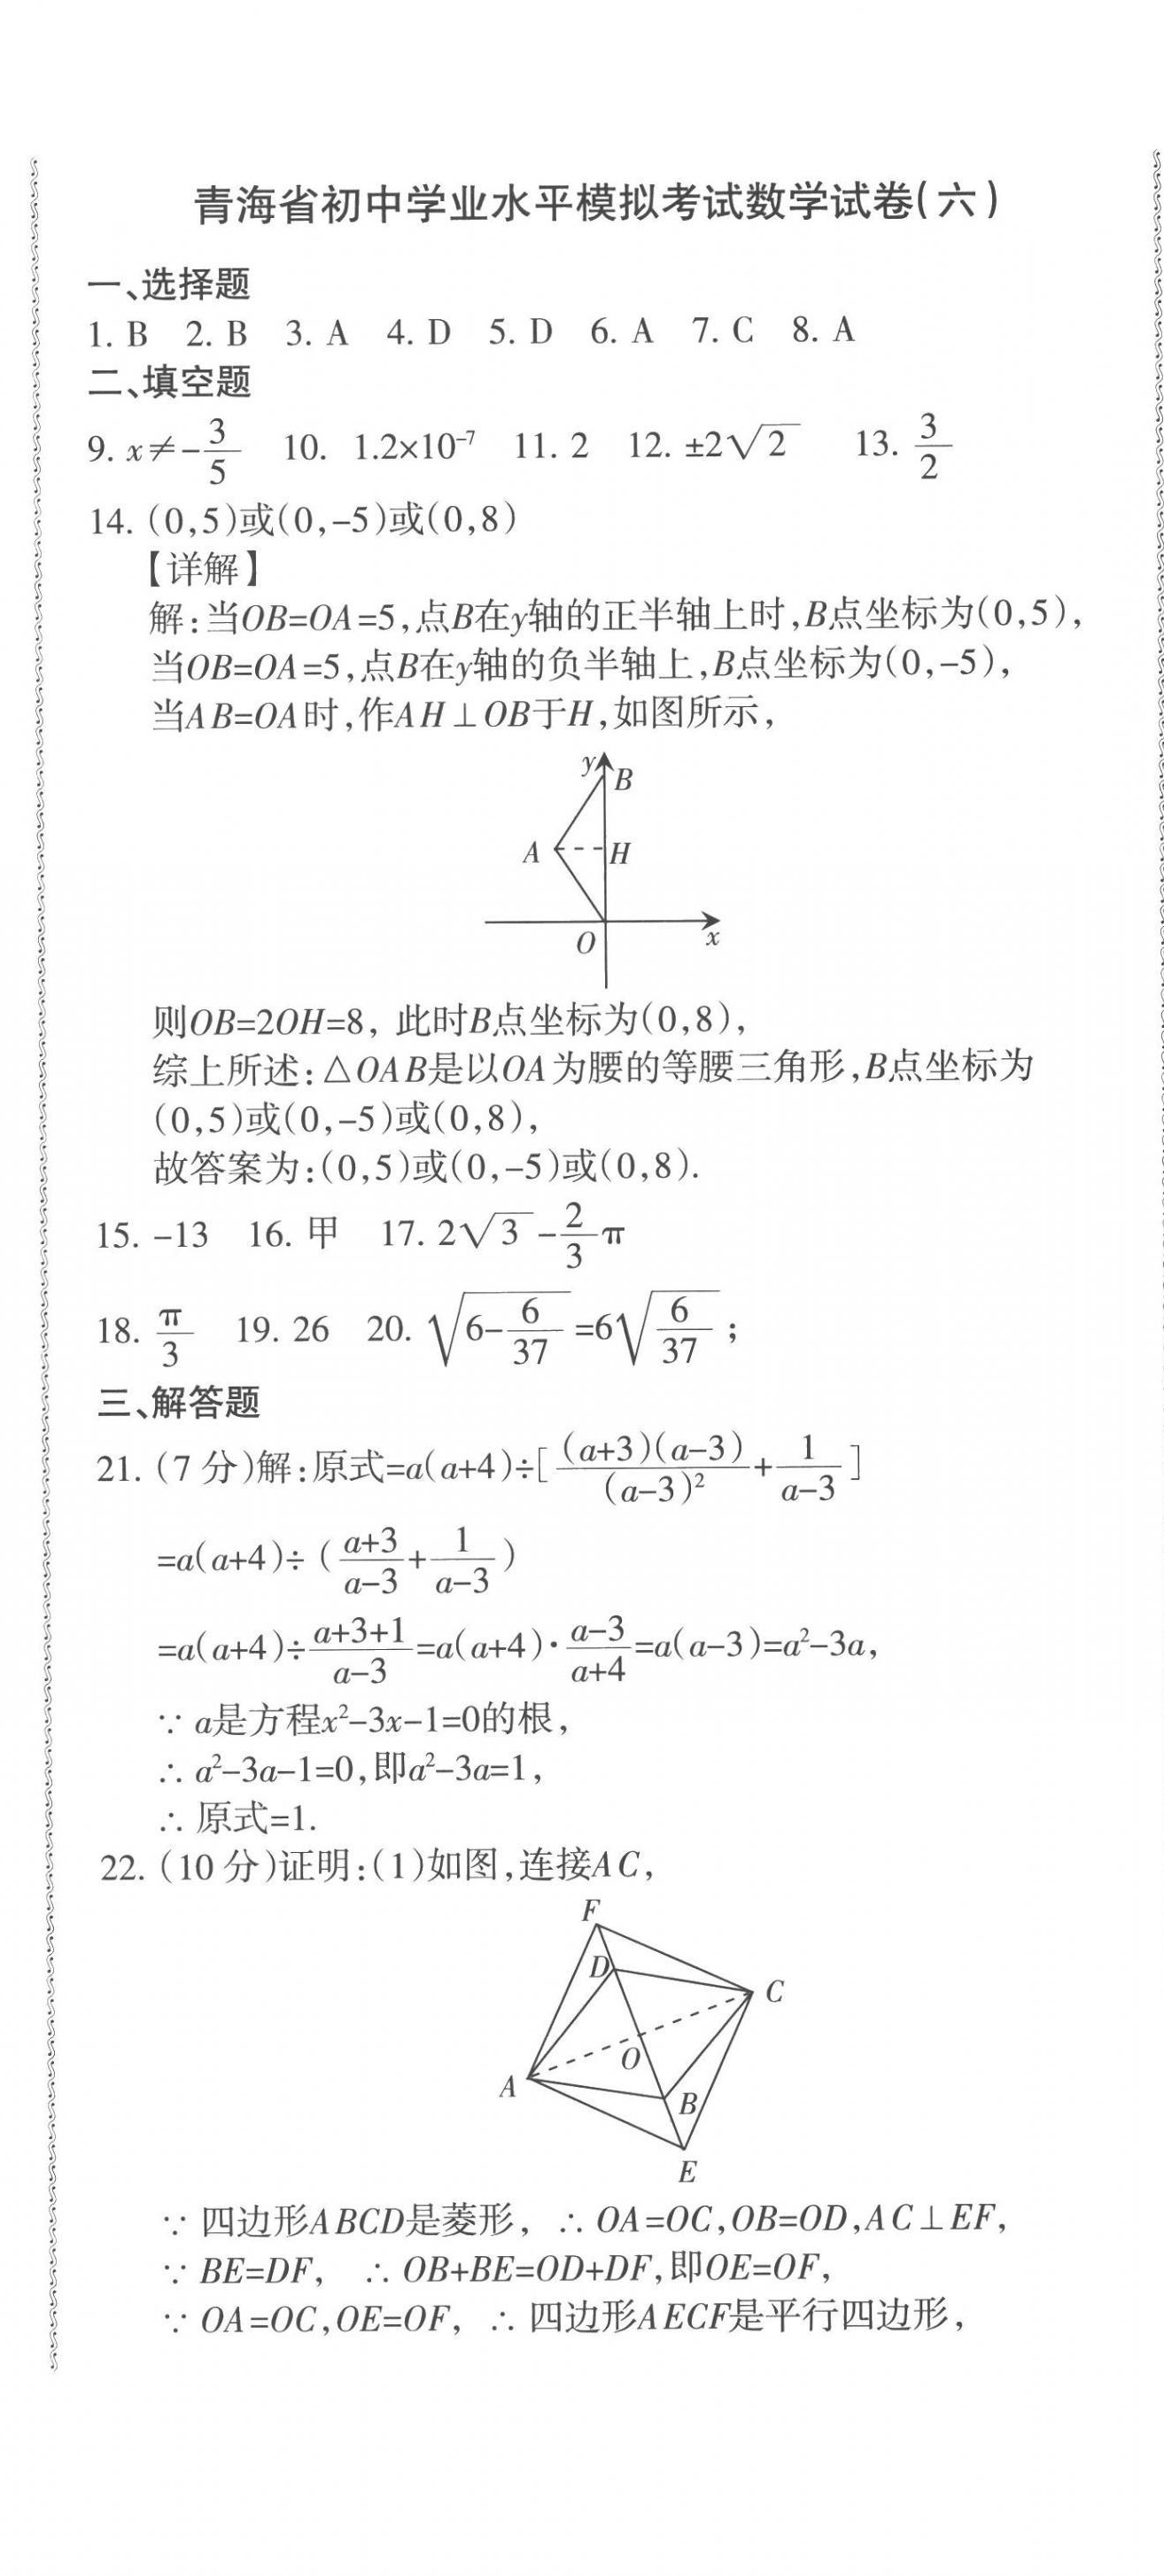 青海省初中学业水平模拟考试数学试卷(六)
一、选择题
1. B 2. B 3. A 4. D 5. D 6. A 7. C 8. A
二、填空题
9. x≠-3/5 10. 1.2×10⁻⁷ 11. 2 12. ±2√2 13. 3/2
14. (0,5)或(0,-5)或(0,8)
【详解】
解:当OB=OA=5,点B在y轴的正半轴上时,B点坐标为(0,5),
当OB=OA=5,点B在y轴的负半轴上,B点坐标为(0,-5),
当AB=OA时,作AH⊥OB于H,如图所示,
y
B
A
H
O
x
则OB=2OH=8, 此时B点坐标为(0,8),
综上所述:△OAB是以OA为腰的等腰三角形,B点坐标为
(0,5)或(0,-5)或(0,8),
故答案为:(0,5)或(0,-5)或(0,8).
15. -13 16. 甲 17. 2√3-2/3π
18. π/3 19. 26 20. √(6-6/37)=6√(6/37);
三、解答题
21. (7分)解:原式=a(a+4)÷[(a+3)(a-3)/(a-3)²+1/(a-3)]
=a(a+4)÷((a+3)/(a-3)+1/(a-3))
=a(a+4)÷(a+3+1)/(a-3)=a(a+4)·(a-3)/(a+4)=a(a-3)=a²-3a,
∵ a是方程x²-3x-1=0的根,
∴ a²-3a-1=0,即a²-3a=1,
∴ 原式=1.
22. (10分)证明:(1)如图,连接AC,
F
D
C
O
A
B
E
∵ 四边形ABCD是菱形, ∴ OA=OC,OB=OD,AC⊥EF,
∵ BE=DF, ∴ OB+BE=OD+DF,即OE=OF,
∵ OA=OC,OE=OF, ∴ 四边形AECF是平行四边形,